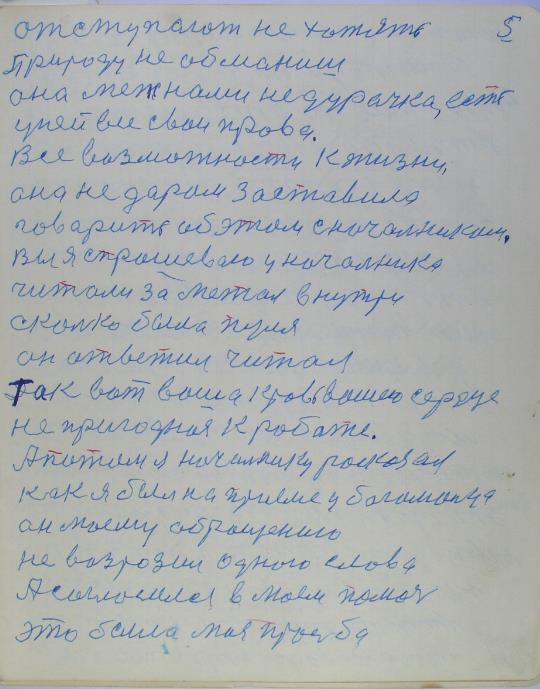 отступают не хотять 5
природу не обманиш
она межнами недурачка, есть
уней все свои прова.
Все возможности к жизни,
она недаром заставила
говарить обэтом сночалником.
Вы я спрошеваю у ночалника
читали заметал внутри
сколко была пуля
он ответил читал
Так вот ваша кров вашею сердце
не пригодная кработе.
Апотом я ночалнику росказал
как я был на приеме у богомолца
он моему обращению
не возрозил одного слова
Асоглосился в моем помоч
это была моя прозба